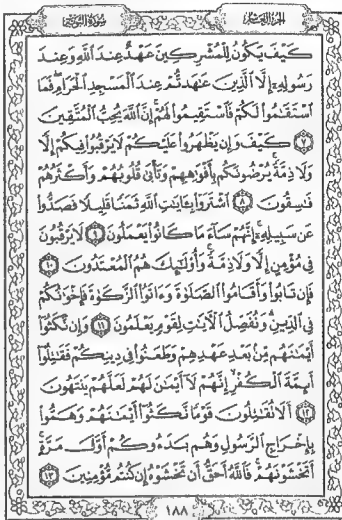 الجزء العاشر
سورة التوبة
كَيْفَ يَكُونُ لِلْمُشْرِكِينَ عَهْدٌ عِندَ اللَّهِ وَعِندَ
رَسُولِهِ إِلَّا الَّذِينَ عَاهَدتُّمْ عِندَ الْمَسْجِدِ الْحَرَامِ فَمَا
اسْتَقَامُوا لَكُمْ فَاسْتَقِيمُوا لَهُمْ إِنَّ اللَّهَ يُحِبُّ الْمُتَّقِينَ
٧ كَيْفَ وَإِن يَظْهَرُوا عَلَيْكُمْ لَا يَرْقُبُوا فِيكُمْ إِلًّا
وَلَا ذِمَّةً يُرْضُونَكُم بِأَفْوَاهِهِمْ وَتَأْبَى قُلُوبُهُمْ وَأَكْثَرُهُمْ
فَاسِقُونَ ٨ اشْتَرَوْا بِآيَاتِ اللَّهِ ثَمَنًا قَلِيلًا فَصَدُّوا
عَن سَبِيلِهِ إِنَّهُمْ سَاءَ مَا كَانُوا يَعْمَلُونَ ٩ لَا يَرْقُبُونَ
فِي مُؤْمِنٍ إِلًّا وَلَا ذِمَّةً وَأُولَٰئِكَ هُمُ الْمُعْتَدُونَ ١٠
فَإِن تَابُوا وَأَقَامُوا الصَّلَوٰةَ وَءَاتَوُا الزَّكَوٰةَ فَإِخْوَانُكُمْ
فِي الدِّينِ وَنُفَصِّلُ الْآيَاتِ لِقَوْمٍ يَعْلَمُونَ ١١ وَإِن نَّكَثُوا
أَيْمَانَهُم مِّن بَعْدِ عَهْدِهِمْ وَطَعَنُوا فِي دِينِكُمْ فَقَاتِلُوا
أَئِمَّةَ الْكُفْرِ إِنَّهُمْ لَا أَيْمَانَ لَهُمْ لَعَلَّهُمْ يَنتَهُونَ
١٢ أَلَا تُقَاتِلُونَ قَوْمًا نَّكَثُوا أَيْمَانَهُمْ وَهَمُّوا
بِإِخْرَاجِ الرَّسُولِ وَهُم بَدَءُوكُمْ أَوَّلَ مَرَّةٍ
أَتَخْشَوْنَهُمْ فَاللَّهُ أَحَقُّ أَن تَخْشَوْهُ إِن كُنتُم مُّؤْمِنِينَ ١٣
١٨٨